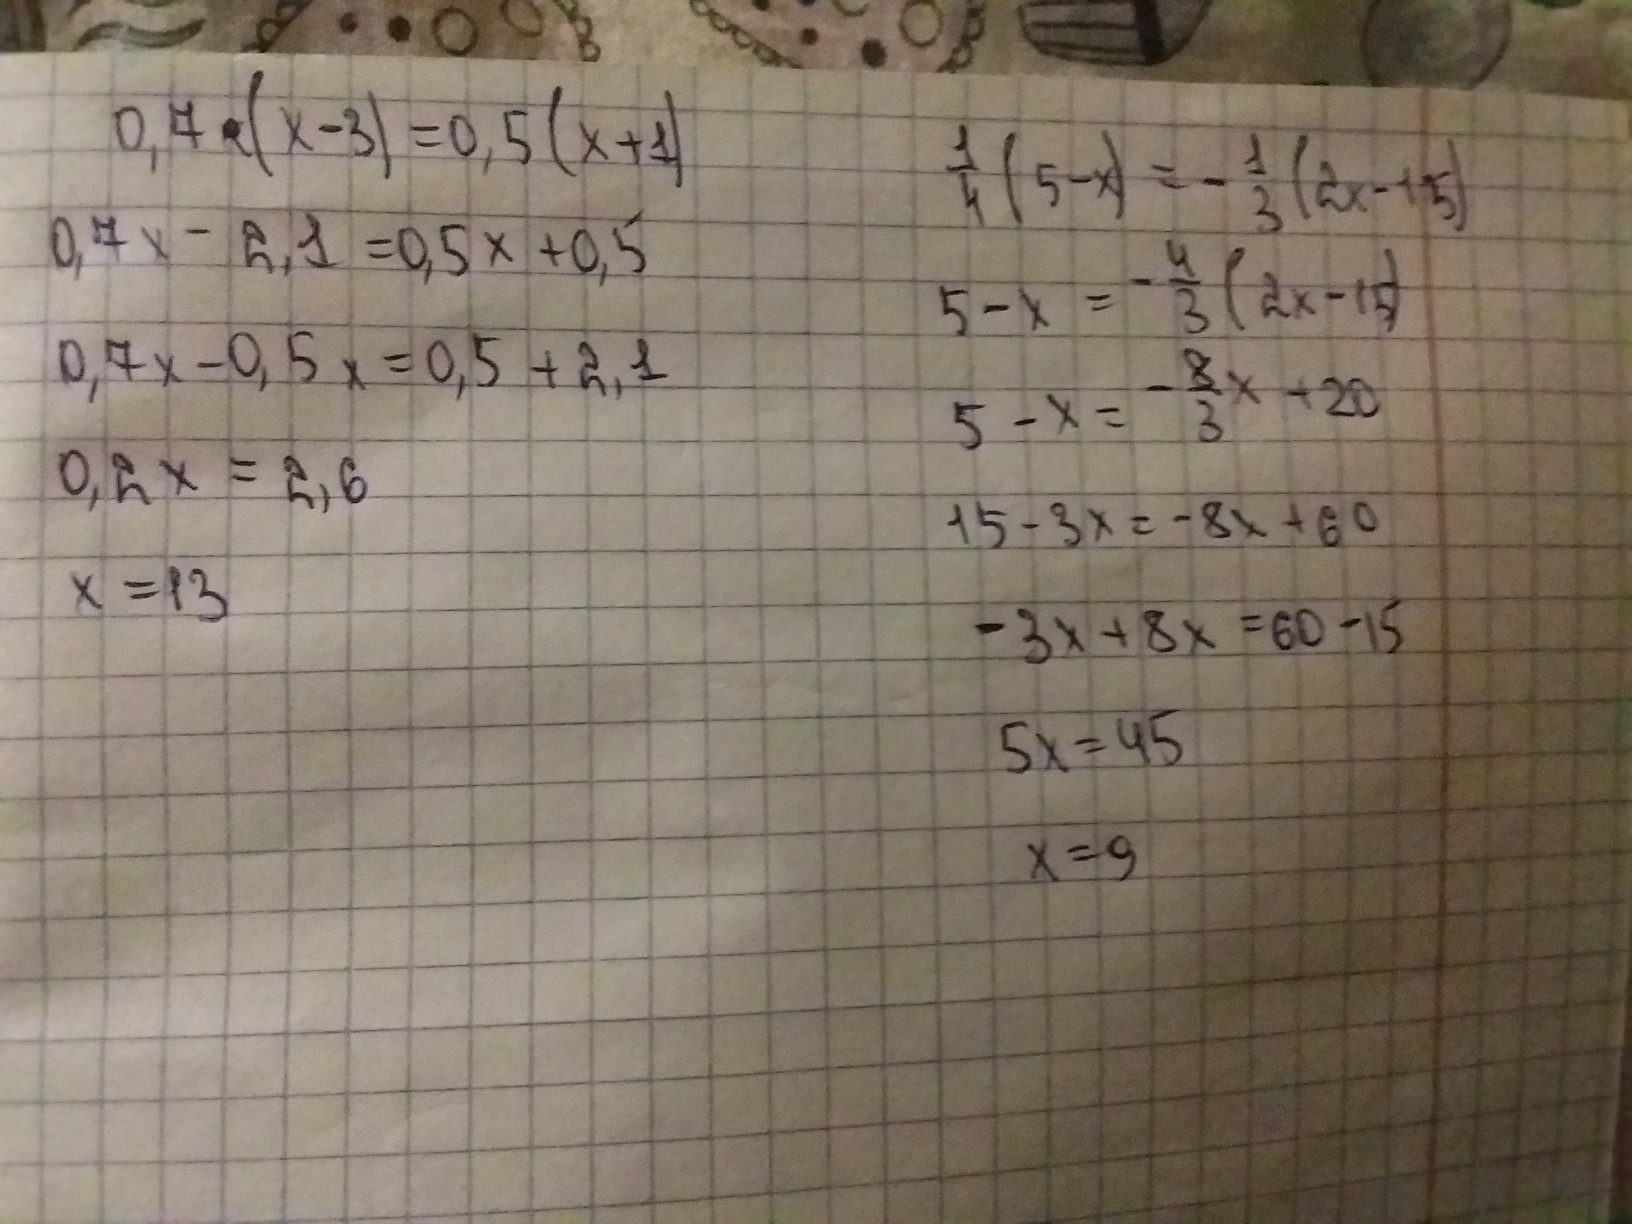 0,7·(x-3)=0,5(x+1)
0,7x-2,1=0,5x+0,5
0,7x-0,5x=0,5+2,1
0,2x=2,6
x=13
1/4(5-x)=-1/3(2x-15)
5-x=-4/3(2x-15)
5-x=-8/3x+20
15-3x=-8x+60
-3x+8x=60-15
5x=45
x=9